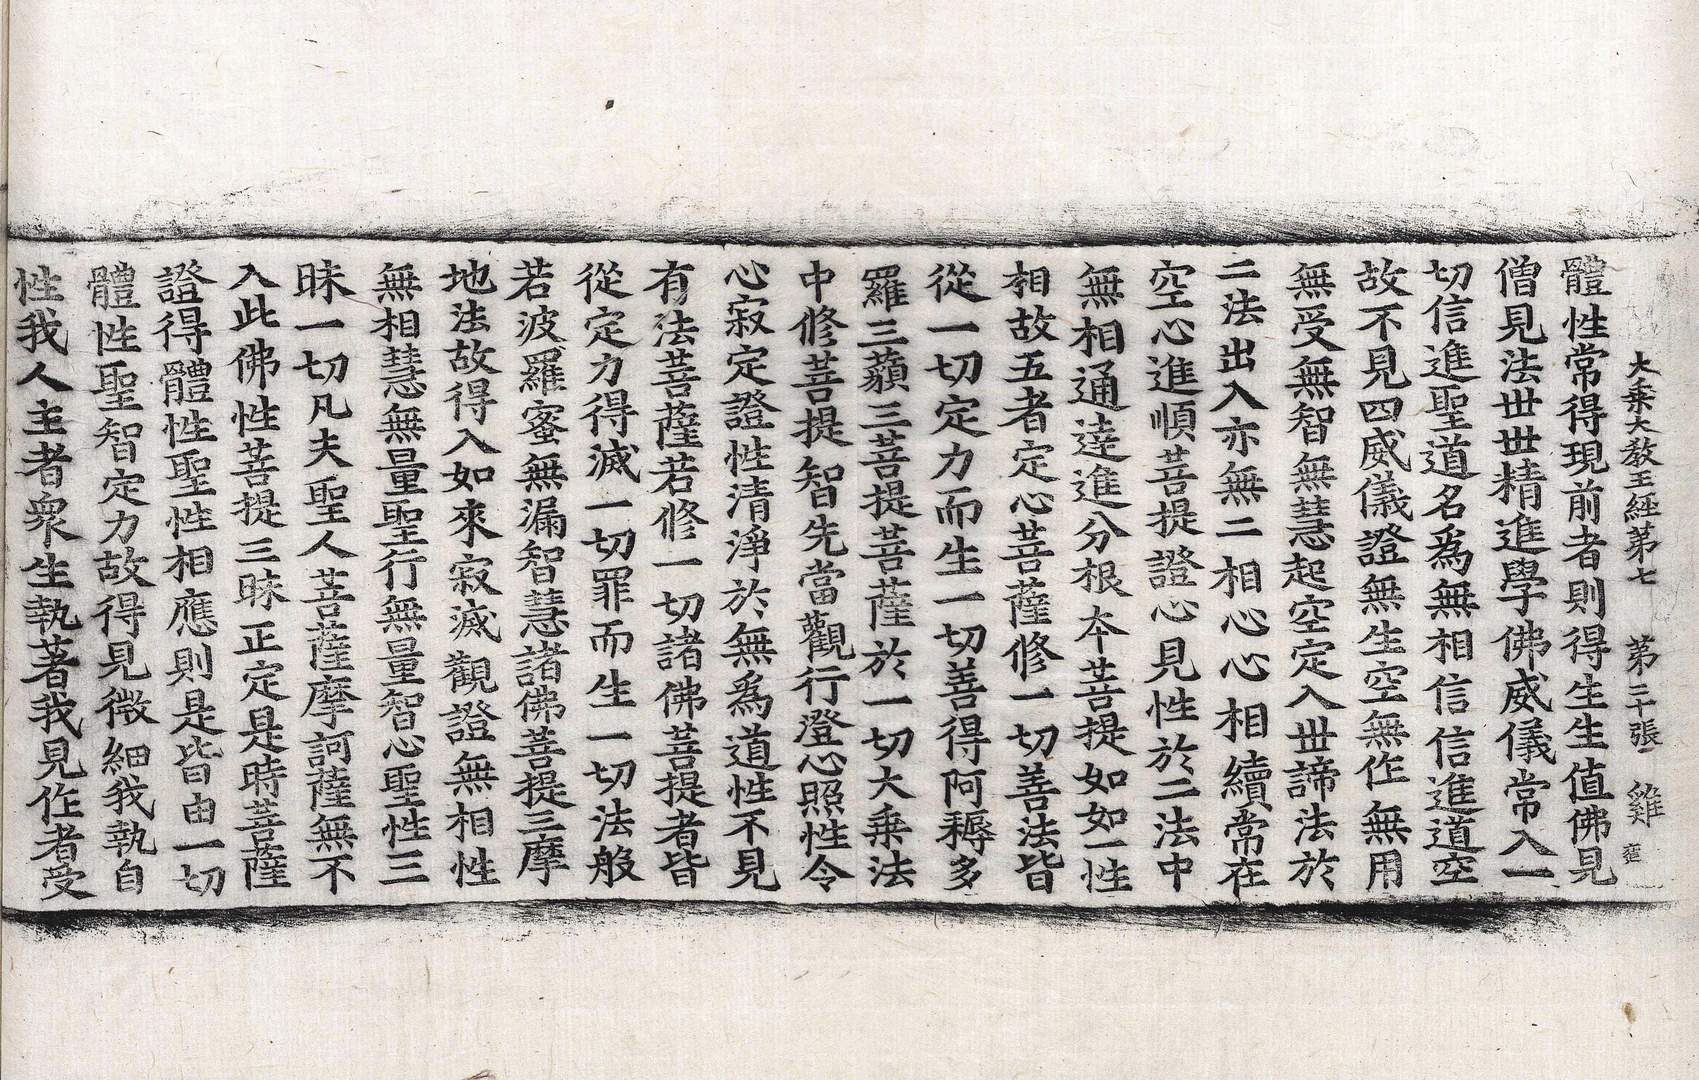 大乗大教王經第七 第三十張 雞
體性常得現前者則得生生值佛見
僧見法世世精進學佛威儀常入一
切信進聖道名爲無相信信進道空
故不見四威儀證無生空無作無用
無受無智無慧起空定入世諦法於
二法出入亦無二相心心相續常在
空心進順菩提證心見性於二法中
無相通達進分根本菩提如如一性
相故五者定心菩薩修一切善法皆
從一切定力而生一切善得阿耨多
羅三藐三菩提菩薩於一切大乗法
中修菩提智先當觀行澄心照性令
心寂定證性清淨於無爲道性不見
有法菩薩若修一切諸佛菩提者皆
從定力得滅一切罪而生一切法般
若波羅蜜無漏智慧諸佛菩提三摩
地法故得入如來寂滅觀證無相性
無相慧無量聖行無量智心聖性三
昧一切凡夫聖人菩薩摩訶薩無不
入此佛性菩提三昧正定是時菩薩
證得體性聖性相應則是皆由一切
體性聖智定力故得見微細我執自
性我人主者衆生執著我見作者受